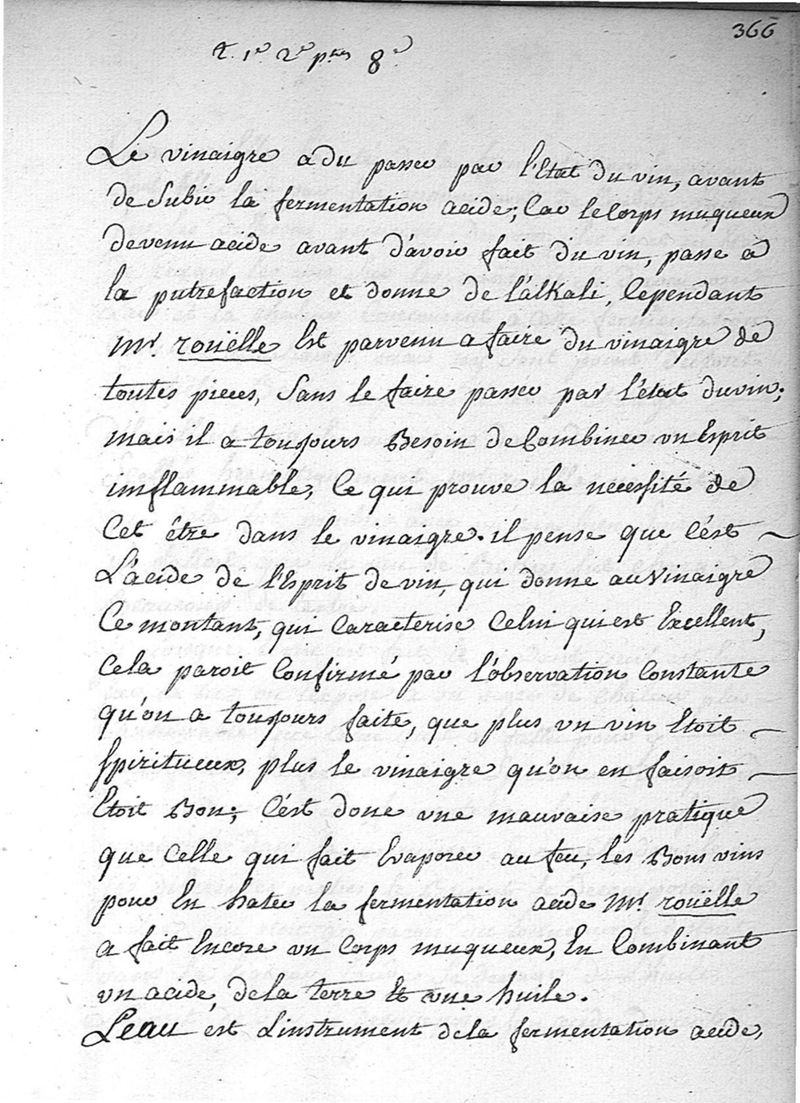 366
t. 1re 2e ptes 8e
Le vinaigre a du passer par l'Etat du vin, avant
de Subir la fermentation acide; Car le Corps muqueux
devenu acide avant d'avoir fait du vin, passe à
la putrefaction et donne de l'álkali, Cependant
Mr. rouëlle Est parvenu a faire du vinaigre de
toutes pieces, Sans le faire passer par l'état du vin;
mais il a toujours Besoin de Combiner un Esprit
inflammable, Ce qui prouve la necéssité de
Cet être dans le vinaigre. il pense que C'ést
L'ácide de l'Esprit de vin, qui donne au Vinaigre
Ce montant, qui Caracterise Celui qui est Excellent,
Cela paroit Confirmé par l'observation Constante
qu'on a toujours faite, que plus un vin Etoit
Spiritueux, plus le vinaigre qu'on en faisoit
Etoit Bon; C'ést donc une mauvaise pratique
que Celle qui fait Evaporer au feu, les Bons vins
pour En hater la fermentation acide Mr. rouëlle
a fait Encore un Corps muqueux, En Combinant
un acide, de la terre Et une huile.
L'eau ést L'instrument de la fermentation acide,